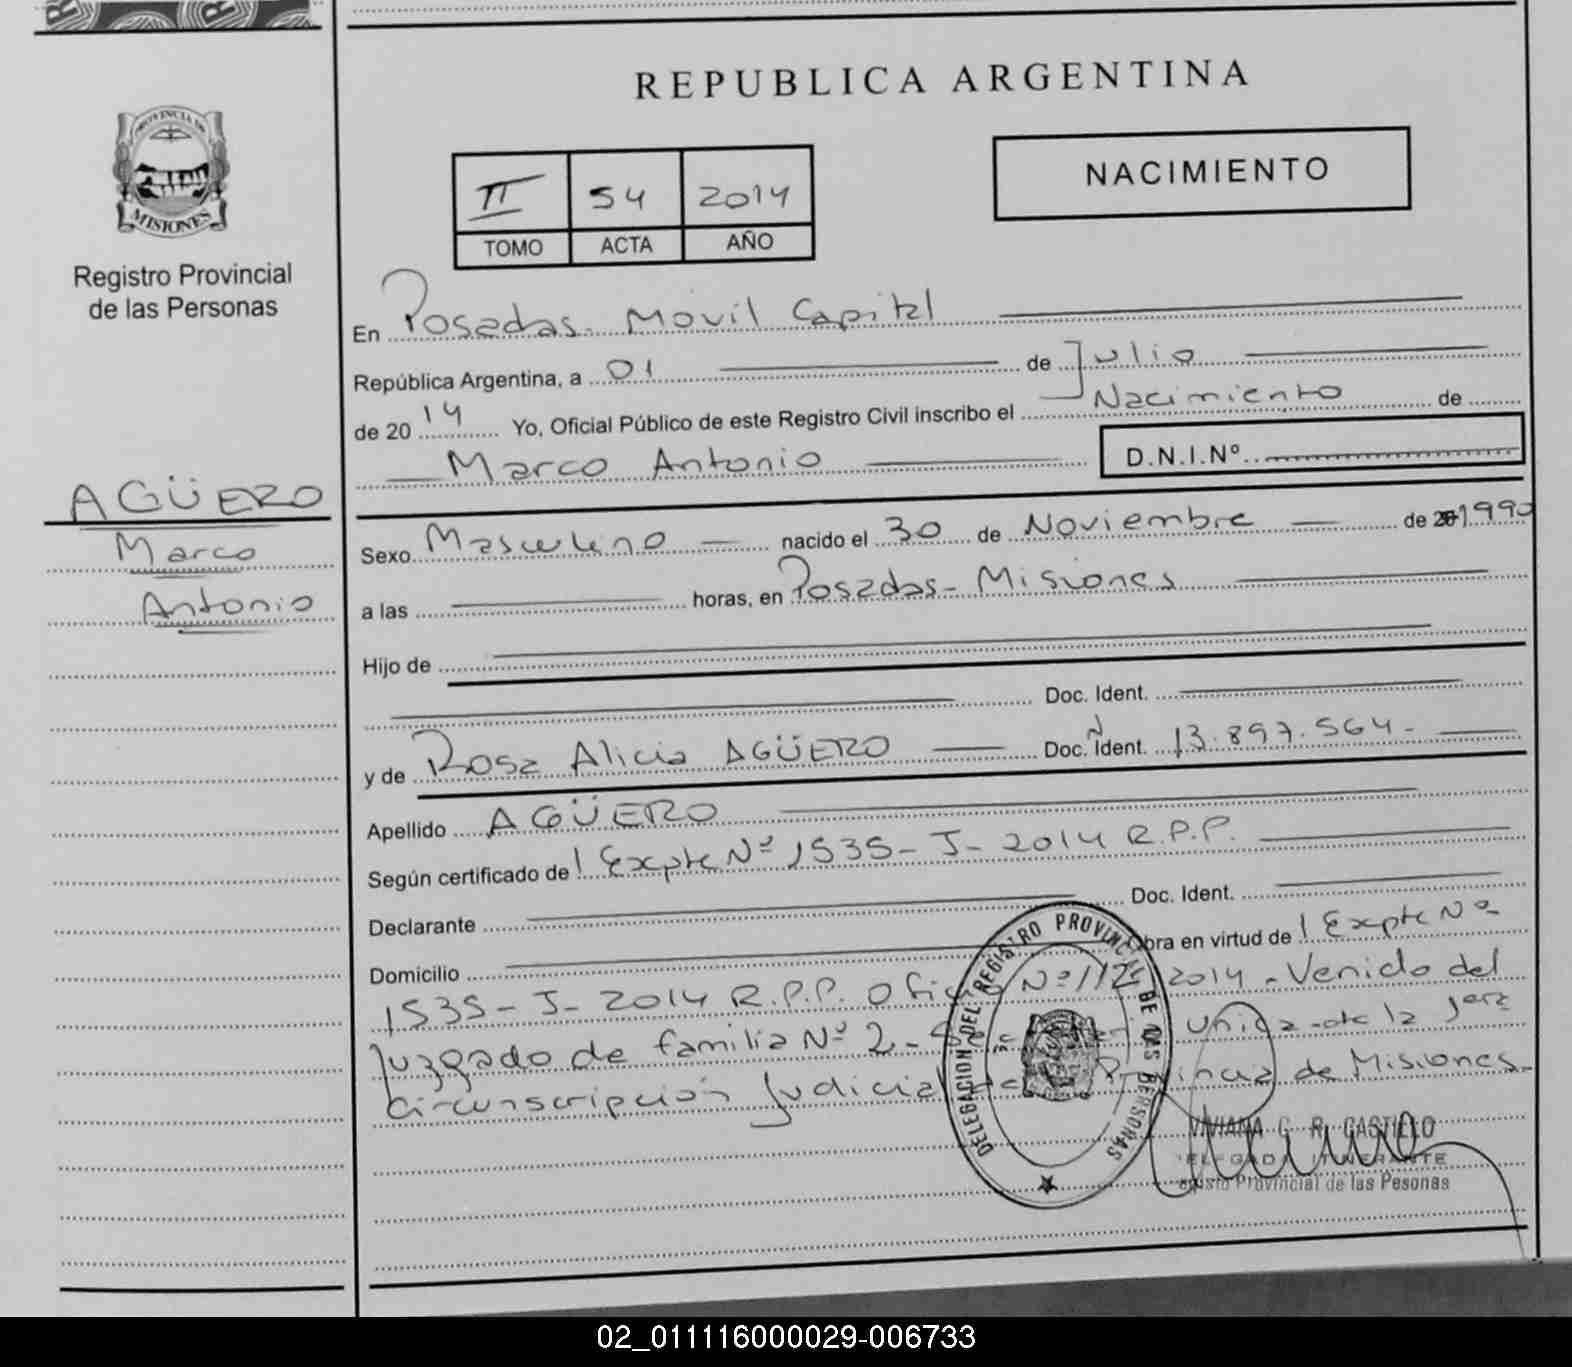 REPUBLICA ARGENTINA
PROVINCIA DE
MISIONES
Registro Provincial
de las Personas
AGÜERO
Marco
Antonio
NACIMIENTO
II 54 2014
TOMO ACTA AÑO
En Posadas - Movil Capital
República Argentina, a 01 de Julio
de 2014 Yo, Oficial Público de este Registro Civil inscribo el Nacimiento de
Marco Antonio D.N.I.Nº
Sexo Masculino nacido el 30 de Noviembre de 1990
a las horas, en Posadas - Misiones
Hijo de
Doc. Ident.
y de Rosa Alicia AGÜERO Doc. Ident. 13.897.564-
Apellido AGÜERO
Según certificado de Expte Nº 1535-J-2014 R.P.P.
Declarante Doc. Ident.
Domicilio Obra en virtud de Expte Nº
1535-J-2014 R.P.P. Oficio Nº 112 2014 - Venido del
Juzgado de familia Nº 2 - unica - de la 1era
Circunscripción Judicial Provincia de Misiones-
DELEGACION DEL REGISTRO PROVINCIAL DE LAS PERSONAS
VIVIANA G. R. CASTILLO
DELEGADA ITINERANTE
Registro Provincial de las Pesonas
02_011116000029-006733